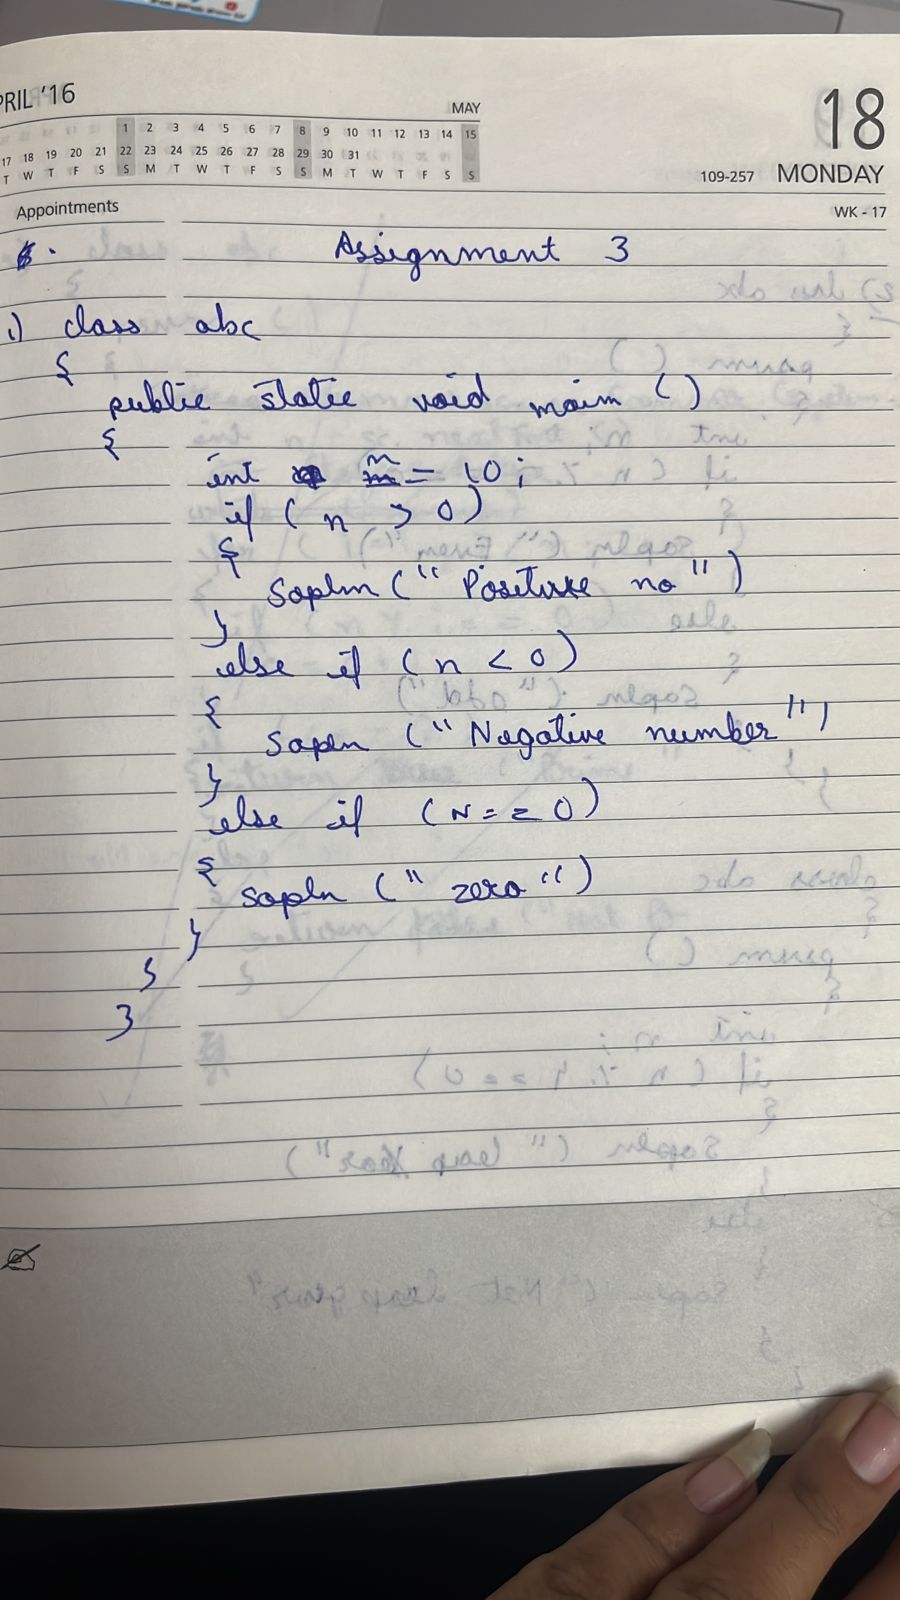 PRIL '16
MAY
1 2 3 4 5 6 7 8 9 10 11 12 13 14 15
17 18 19 20 21 22 23 24 25 26 27 28 29 30 31
T W T F S S M T W T F S S M T W T F S S
18
109-257 MONDAY
Appointments
WK - 17
Assignment 3
1) class abc
{
public static void main ()
{
int n = 10;
if ( n > 0)
{
Sopln (" Positive no ")
}
else if ( n < 0)
{
sopln (" Negative number ")
}
else if ( N = = 0)
{
sopln (" zero ")
}
}
}